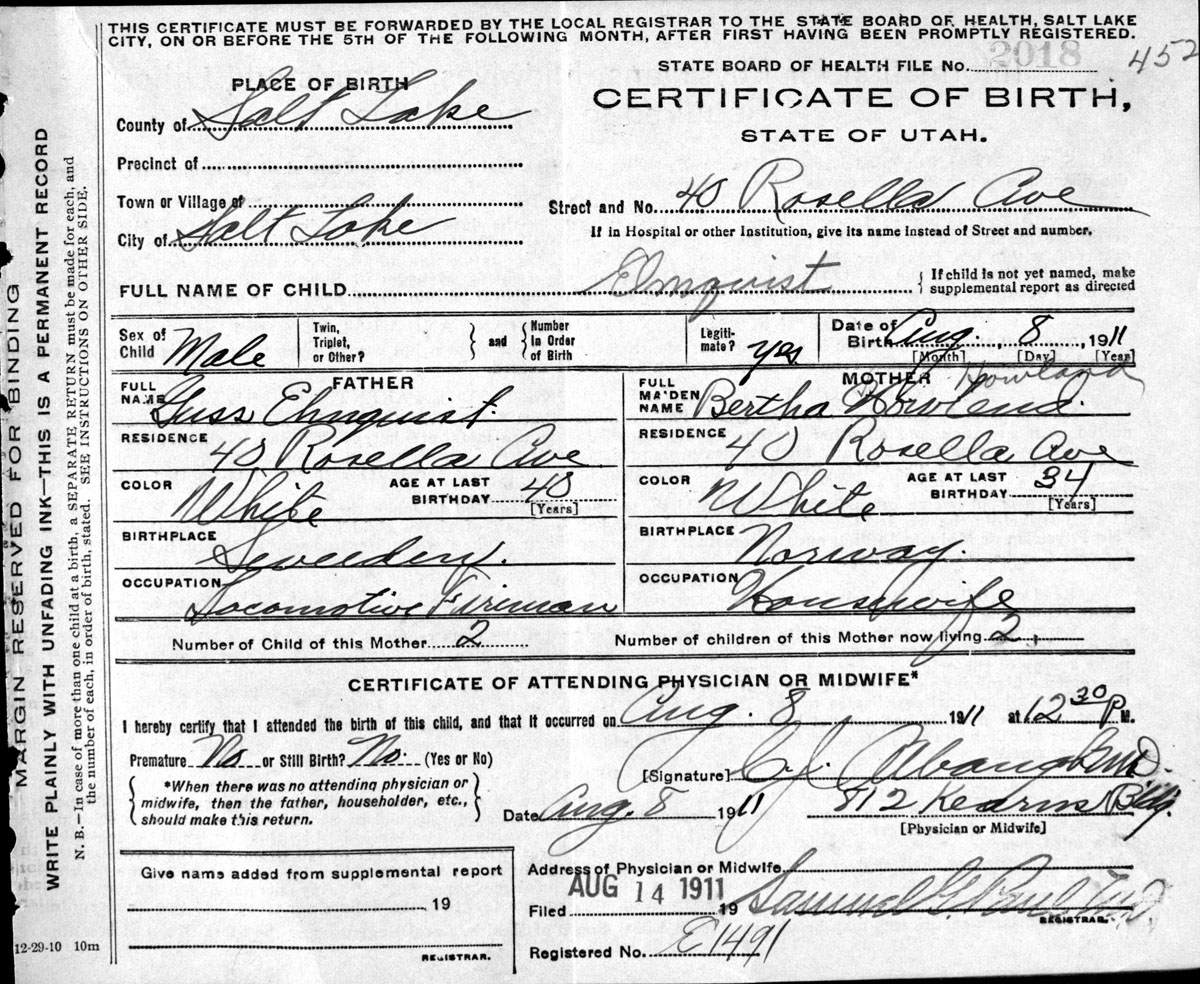 THIS CERTIFICATE MUST BE FORWARDED BY THE LOCAL REGISTRAR TO THE STATE BOARD OF HEALTH, SALT LAKE
CITY, ON OR BEFORE THE 5TH OF THE FOLLOWING MONTH, AFTER FIRST HAVING BEEN PROMPTLY REGISTERED.
STATE BOARD OF HEALTH FILE No. 2018 452
PLACE OF BIRTH
CERTIFICATE OF BIRTH,
STATE OF UTAH.
County of Salt Lake
Precinct of
Town or Village of
City of Salt Lake
Street and No. 40 Rosella Ave
If in Hospital or other Institution, give its name instead of Street and number.
FULL NAME OF CHILD Elmquist { If child is not yet named, make
supplemental report as directed
Sex of Child Male
Twin, Triplet, or Other? } and { Number in Order of Birth
Legiti-mate? yes
Date of Birth Aug. 8, 1911
[Month] [Day] [Year]
FATHER
FULL NAME Guss Elmquist.
RESIDENCE 40 Rosella Ave
COLOR White AGE AT LAST BIRTHDAY 40 [Years]
BIRTHPLACE Sweeden.
OCCUPATION Locomotive Fireman
MOTHER Howland
FULL MAIDEN NAME Bertha Howlend.
RESIDENCE 40 Rosella Ave
COLOR White AGE AT LAST BIRTHDAY 34 [Years]
BIRTHPLACE Norway.
OCCUPATION Housewife
Number of Child of this Mother 2 Number of children of this Mother now living 2
CERTIFICATE OF ATTENDING PHYSICIAN OR MIDWIFE*
I hereby certify that I attended the birth of this child, and that it occurred on Aug. 8 1911 at 12 30 P M.
Premature No or Still Birth? No. (Yes or No)
{ *When there was no attending physician or
midwife, then the father, householder, etc.,
should make this return. }
[Signature] C. J. Albaugh M.D.
Date Aug. 8 1911 812 Kearns Bldg.
[Physician or Midwife]
Address of Physician or Midwife
Give name added from supplemental report
19
REGISTRAR.
AUG 14 1911
Filed 19 Samuel G. Paul M.D.
REGISTRAR.
Registered No. E1491
12-29-10 10m
MARGIN RESERVED FOR BINDING
WRITE PLAINLY WITH UNFADING INK—THIS IS A PERMANENT RECORD
N. B.—In case of more than one child at a birth, a SEPARATE RETURN must be made for each, and
the number of each, in order of birth, stated. SEE INSTRUCTIONS ON OTHER SIDE.